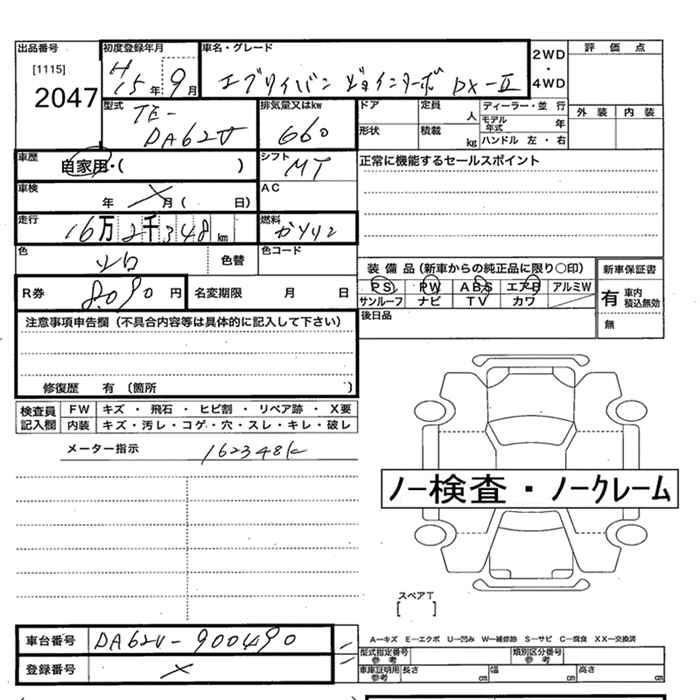 出品番号 初度登録年月 車名・グレード 2WD ・ 4WD 評価点
[1115] 2047 H15年9月 エブリイバン ジョインターボ DX-Ⅱ 外装 内装
型式 TE-DA62V 排気量又はkw 660 ドア 定員 人 ディーラー・並行
形状 積載 kg モデル年式 年 ハンドル 左・右
車歴 自家用・( ) シフト MT 正常に機能するセールスポイント
車検 年 月( 日) AC
走行 16万2千348km 燃料 ガソリン
色 シロ 色替 色コード 装備品(新車からの純正品に限り○印) 新車保証書
R券 8090円 名変期限 月 日 PS PW ABS エアB アルミW 有 車内積込無効
サンルーフ ナビ TV カワ 無
注意事項申告欄(不具合内容等は具体的に記入して下さい) 後日品
修復歴 有(箇所 )
検査員記入欄 FW キズ・飛石・ヒビ割・リペア跡・X要
内装 キズ・汚レ・コゲ・穴・スレ・キレ・破レ
メーター指示 162348K
ノー検査・ノークレーム
スペアT
[ ]
A―キズ E―エクボ U―凹み W―補修跡 S―サビ C―腐食 XX―交換済
車台番号 DA62V-900490 型式指定番号 参考 類別区分番号 参考
登録番号 車庫証明用 参考 長さ cm 幅 cm 高さ cm